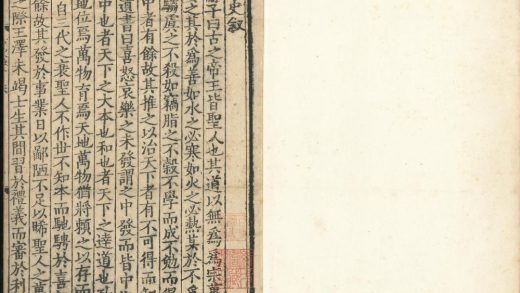 史叙
子曰古之帝王皆聖人也其道以無為為宗萬
之其於為善如水之必寒如火之必熱其於不
騶虞之不殺如竊脂之不穀不學而成不勉而得
中者有餘故其推之以治天下者有不可得而
遺書曰喜怒哀樂之未發謂之中發而皆中
中也者天下之大本也和也者天下之達道也
地位焉萬物育焉天地萬物猶將賴之以存而
自三代之衰聖人不作世不知本而馳騁於喜
餘故其發於事業日以鄙陋不足以睎聖人之萬
之際王澤未竭士生其間習於禮義而審於利